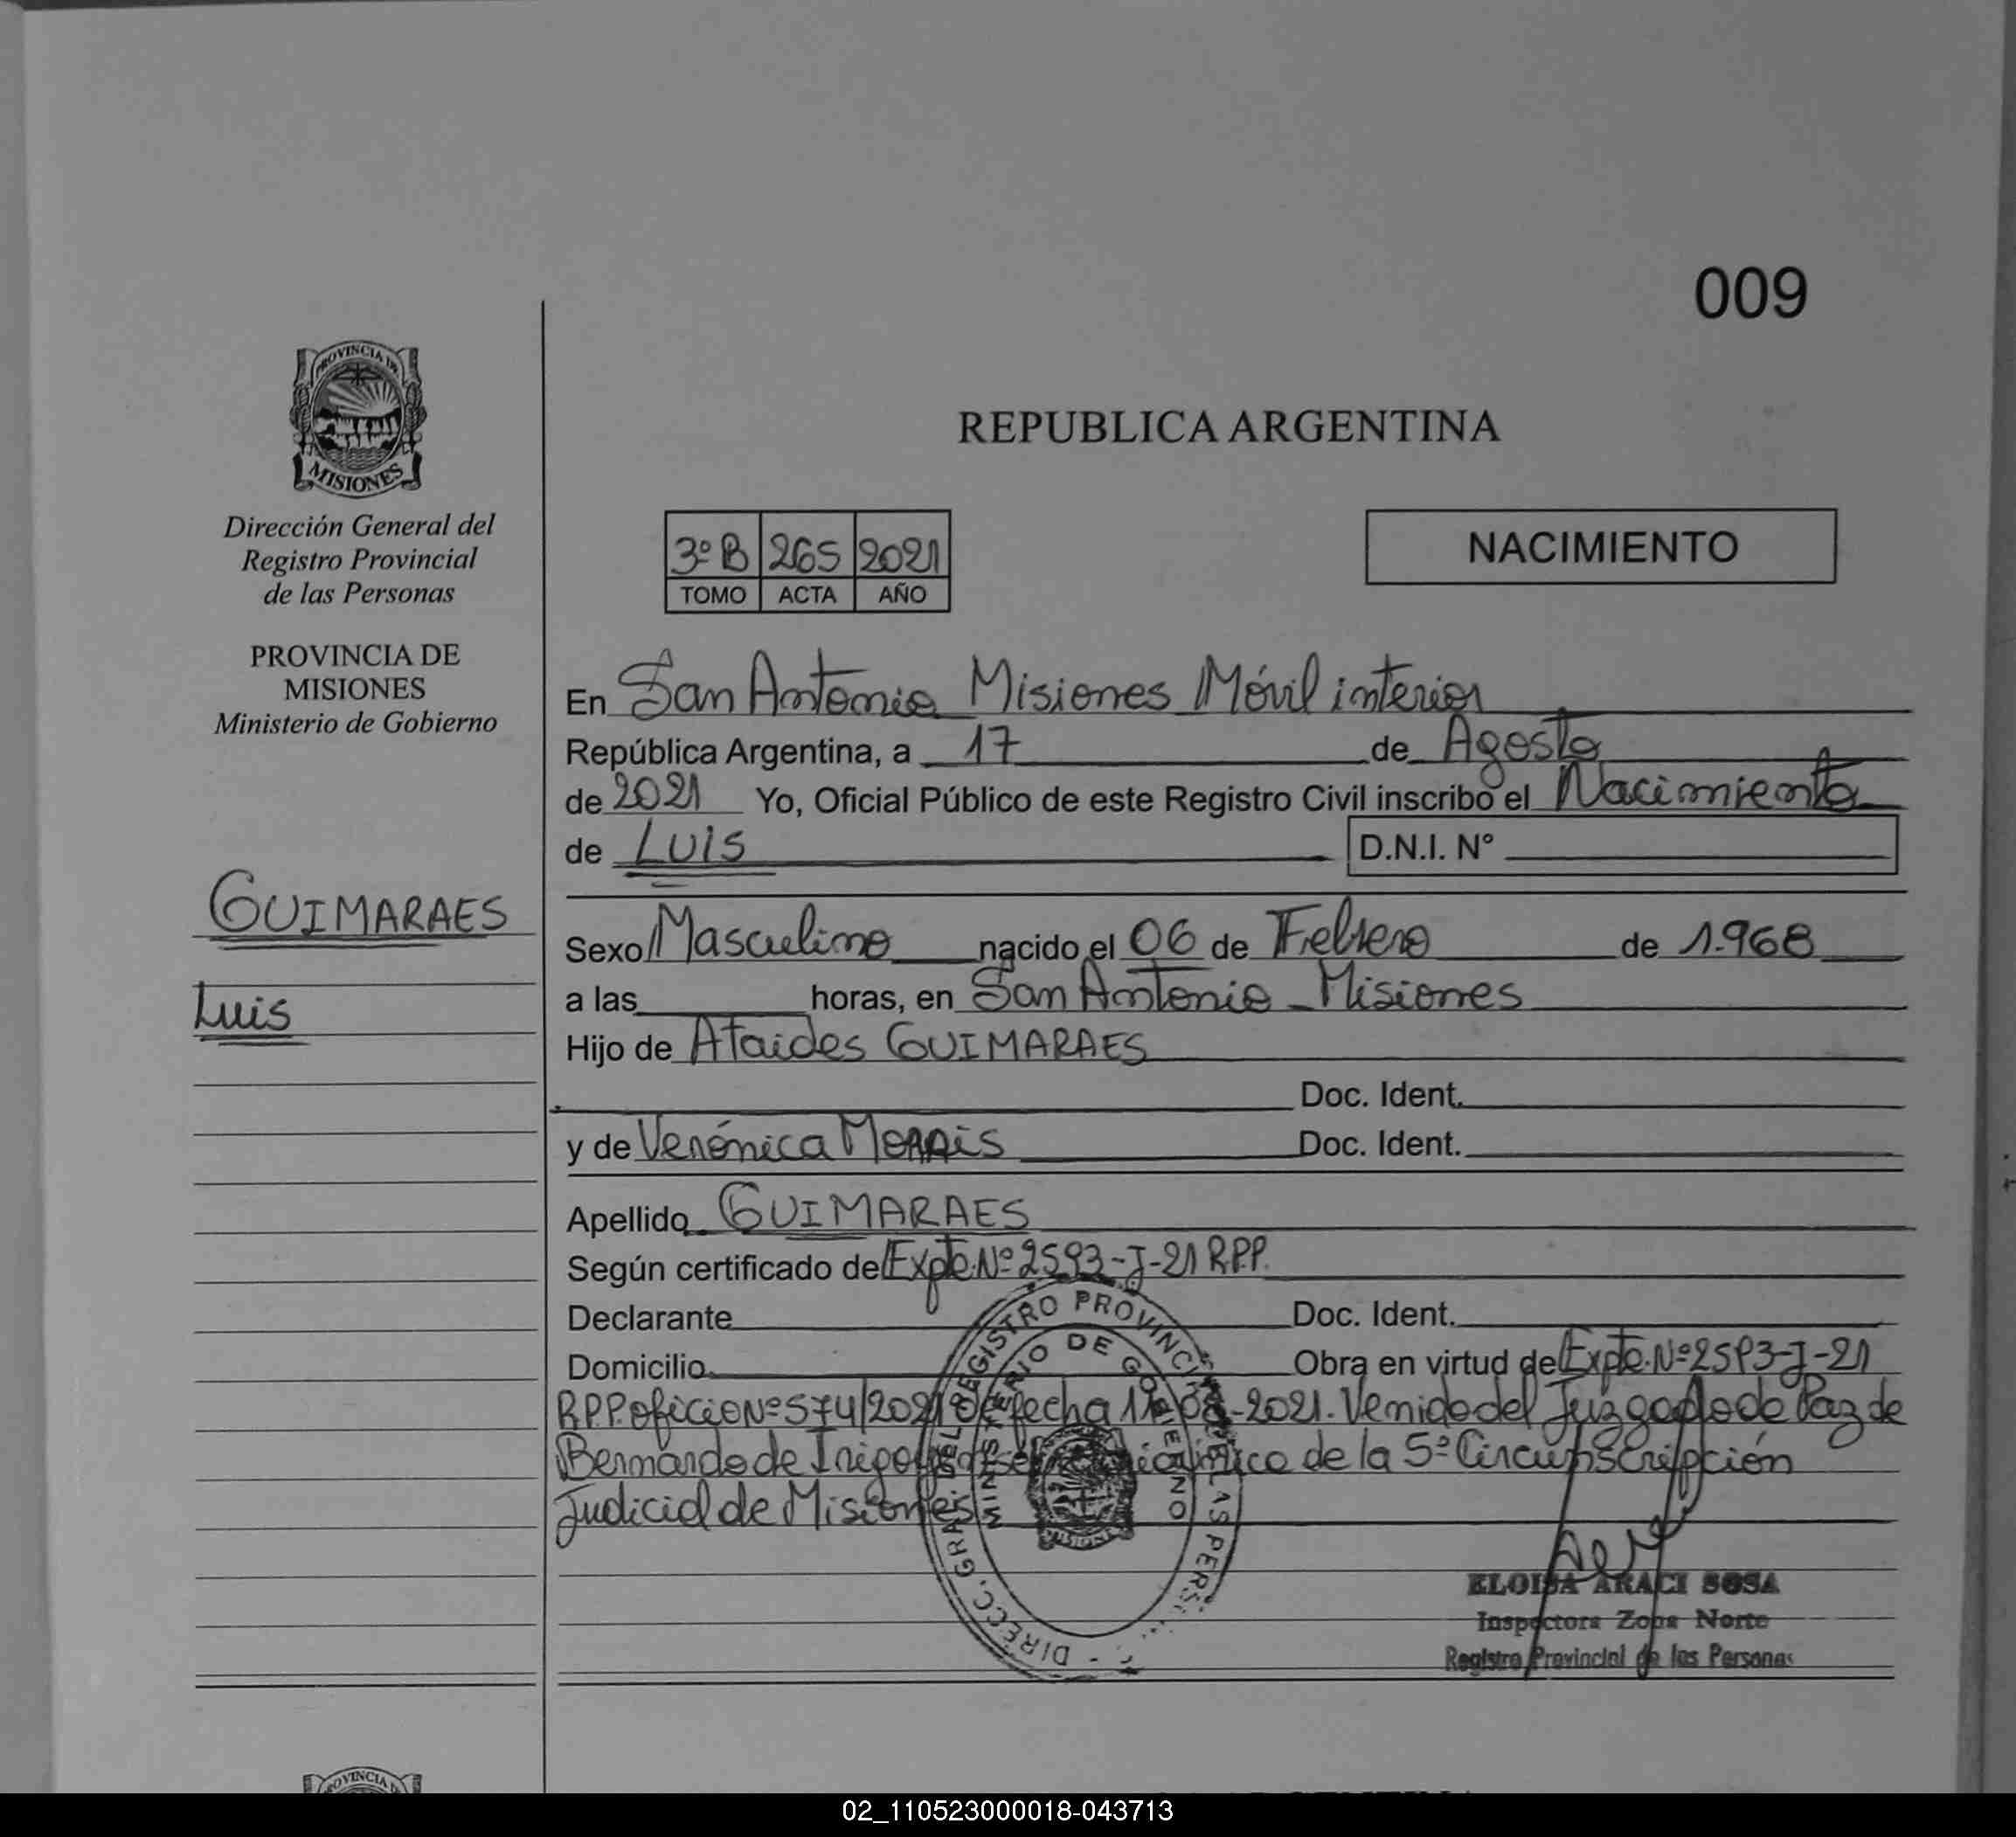 009
PROVINCIA DE
MISIONES
REPUBLICA ARGENTINA
Dirección General del
Registro Provincial
de las Personas
PROVINCIA DE
MISIONES
Ministerio de Gobierno
3º B 265 2021
TOMO ACTA AÑO
NACIMIENTO
En San Antonio Misiones Móvil interior
República Argentina, a 17 de Agosto
de 2021 Yo, Oficial Público de este Registro Civil inscribo el Nacimiento
de Luis D.N.I. Nº
GUIMARAES
Luis
Sexo Masculino nacido el 06 de Febrero de 1.968
a las horas, en San Antonio - Misiones
Hijo de Ataides GUIMARAES
Doc. Ident.
y de Verónica Morais Doc. Ident.
Apellido GUIMARAES
Según certificado de Expte. Nº 2593-J-21 R.P.P.
Declarante Doc. Ident.
Domicilio Obra en virtud de Expte. Nº 2593-J-21
R.P.P. oficio Nº 574/2021 de fecha -2021. Venido del Juzgado de Paz de
Bernardo de Irigoyen de la 5º Circunscripción
Judicial de Misiones
DIRECC. GRAL. DEL REGISTRO PROVINCIAL DE LAS PERS
MINISTERIO DE GOBIERNO
ELOISA ARACI SOSA
Inspectora Zona Norte
Registro Provincial de las Personas
PROVINCIA D
02_110523000018-043713